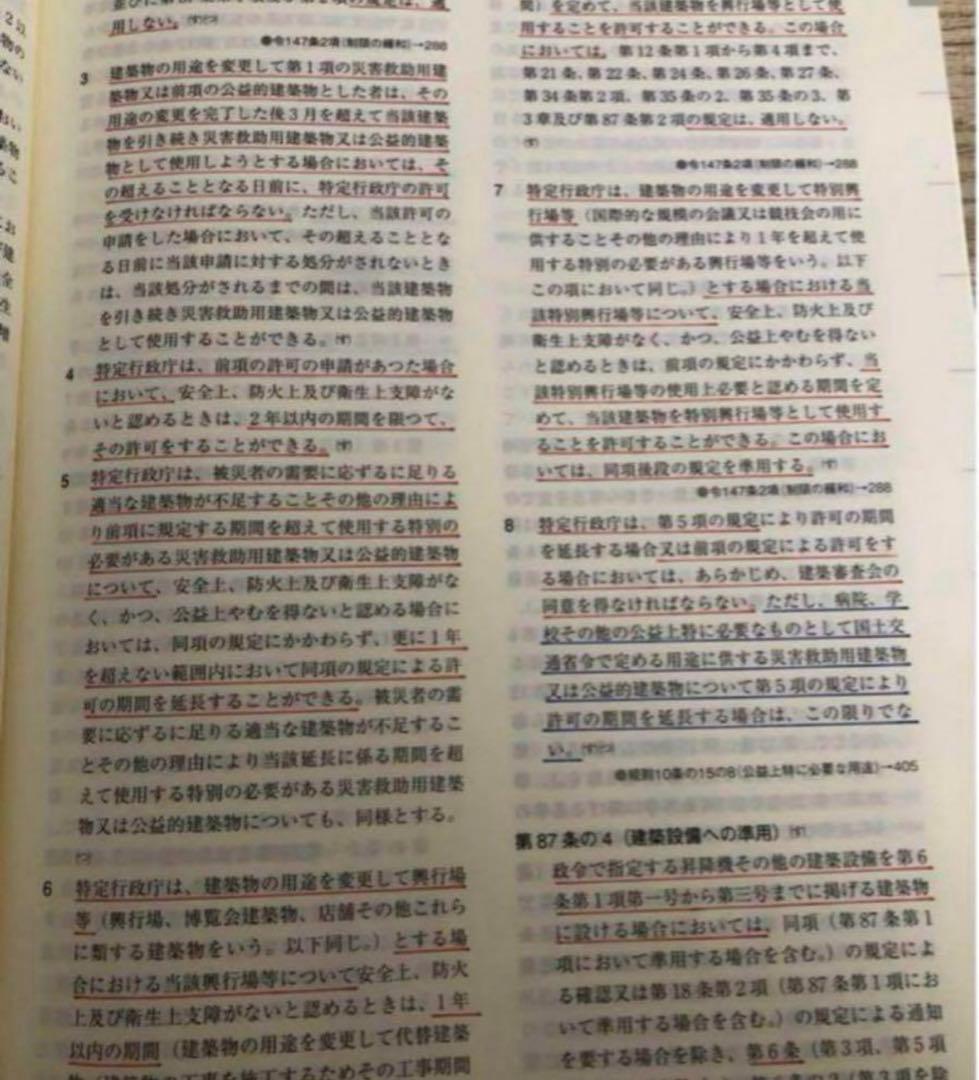 用しない。
●令147条2項(制限の緩和)→288
3 建築物の用途を変更して第1項の災害救助用建
築物又は前項の公益的建築物とした者は、その
用途の変更を完了した後3月を超えて当該建築
物を引き続き災害救助用建築物又は公益的建築
物として使用しようとする場合においては、そ
の超えることとなる日前に、特定行政庁の許可
を受けなければならない。ただし、当該許可の
申請をした場合において、その超えることとな
る日前に当該申請に対する処分がされないとき
は、当該処分がされるまでの間は、当該建築物
を引き続き災害救助用建築物又は公益的建築物
として使用することができる。
4 特定行政庁は、前項の許可の申請があつた場合
において、安全上、防火上及び衛生上支障がな
いと認めるときは、2年以内の期間を限つて、
その許可をすることができる。
5 特定行政庁は、被災者の需要に応ずるに足りる
適当な建築物が不足することその他の理由によ
り前項に規定する期間を超えて使用する特別の
必要がある災害救助用建築物又は公益的建築物
について、安全上、防火上及び衛生上支障がな
く、かつ、公益上やむを得ないと認める場合に
おいては、同項の規定にかかわらず、更に1年
を超えない範囲内において同項の規定による許
可の期間を延長することができる。被災者の需
要に応ずるに足りる適当な建築物が不足するこ
とその他の理由により当該延長に係る期間を超
えて使用する特別の必要がある災害救助用建築
物又は公益的建築物についても、同様とする。
6 特定行政庁は、建築物の用途を変更して興行場
等（興行場、博覧会建築物、店舗その他これら
に類する建築物をいう。以下同じ。）とする場
合における当該興行場等について安全上、防火
上及び衛生上支障がないと認めるときは、1年
以内の期間（建築物の用途を変更して代替建築
間）を定めて、当該建築物を興行場等として使
用することを許可することができる。この場合
においては、第12条第1項から第4項まで、
第21条、第22条、第24条、第26条、第27条、
第34条第2項、第35条の2、第35条の3、第
3章及び第87条第2項の規定は、適用しない。
●令147条2項(制限の緩和)→288
7 特定行政庁は、建築物の用途を変更して特別興
行場等（国際的な規模の会議又は競技会の用に
供することその他の理由により1年を超えて使
用する特別の必要がある興行場等をいう。以下
この項において同じ。）とする場合における当
該特別興行場等について、安全上、防火上及び
衛生上支障がなく、かつ、公益上やむを得ない
と認めるときは、前項の規定にかかわらず、当
該特別興行場等の使用上必要と認める期間を定
めて、当該建築物を特別興行場等として使用す
ることを許可することができる。この場合にお
いては、同項後段の規定を準用する。
●令147条2項(制限の緩和)→288
8 特定行政庁は、第5項の規定により許可の期間
を延長する場合又は前項の規定による許可をす
る場合においては、あらかじめ、建築審査会の
同意を得なければならない。ただし、病院、学
校その他の公益上特に必要なものとして国土交
通省令で定める用途に供する災害救助用建築物
又は公益的建築物について第5項の規定により
許可の期間を延長する場合は、この限りでな
い。
●規則10条の15の8(公益上特に必要な用途)→405
第87条の4（建築設備への準用）
政令で指定する昇降機その他の建築設備を第6
条第1項第一号から第三号までに掲げる建築物
に設ける場合においては、同項（第87条第1
項において準用する場合を含む。）の規定によ
る確認又は第18条第2項（第87条第1項にお
いて準用する場合を含む。）の規定による通知
を要する場合を除き、第6条（第3項、第5項